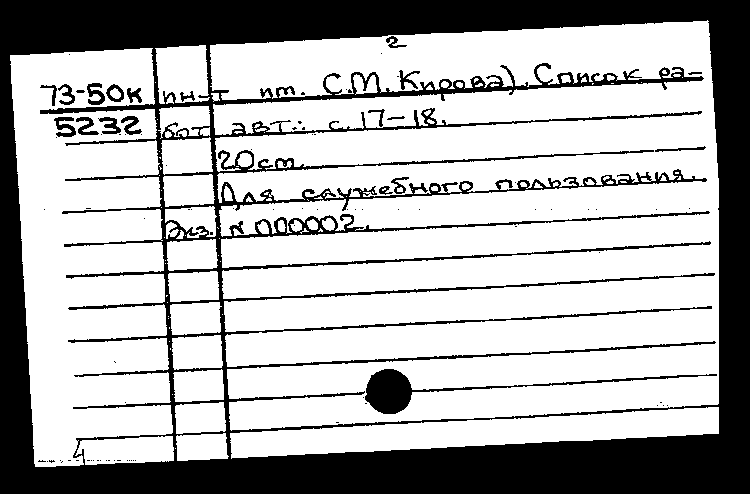 2
73-50к ин-т им. С.М. Кирова). Список ра-
5232 бот авт.: с. 17-18.
20 см.
Для служебного пользования.
Экз. N 000002.
4